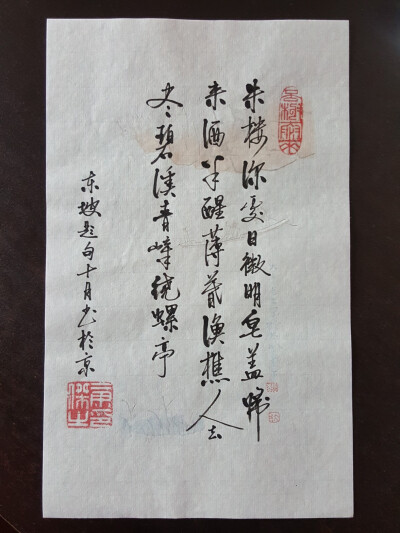 朱楼深处日微明皂盖歸
来酒半醒薄暮渔樵人去
尽碧溪青嶂绕螺亭
东坡题句十月书於京